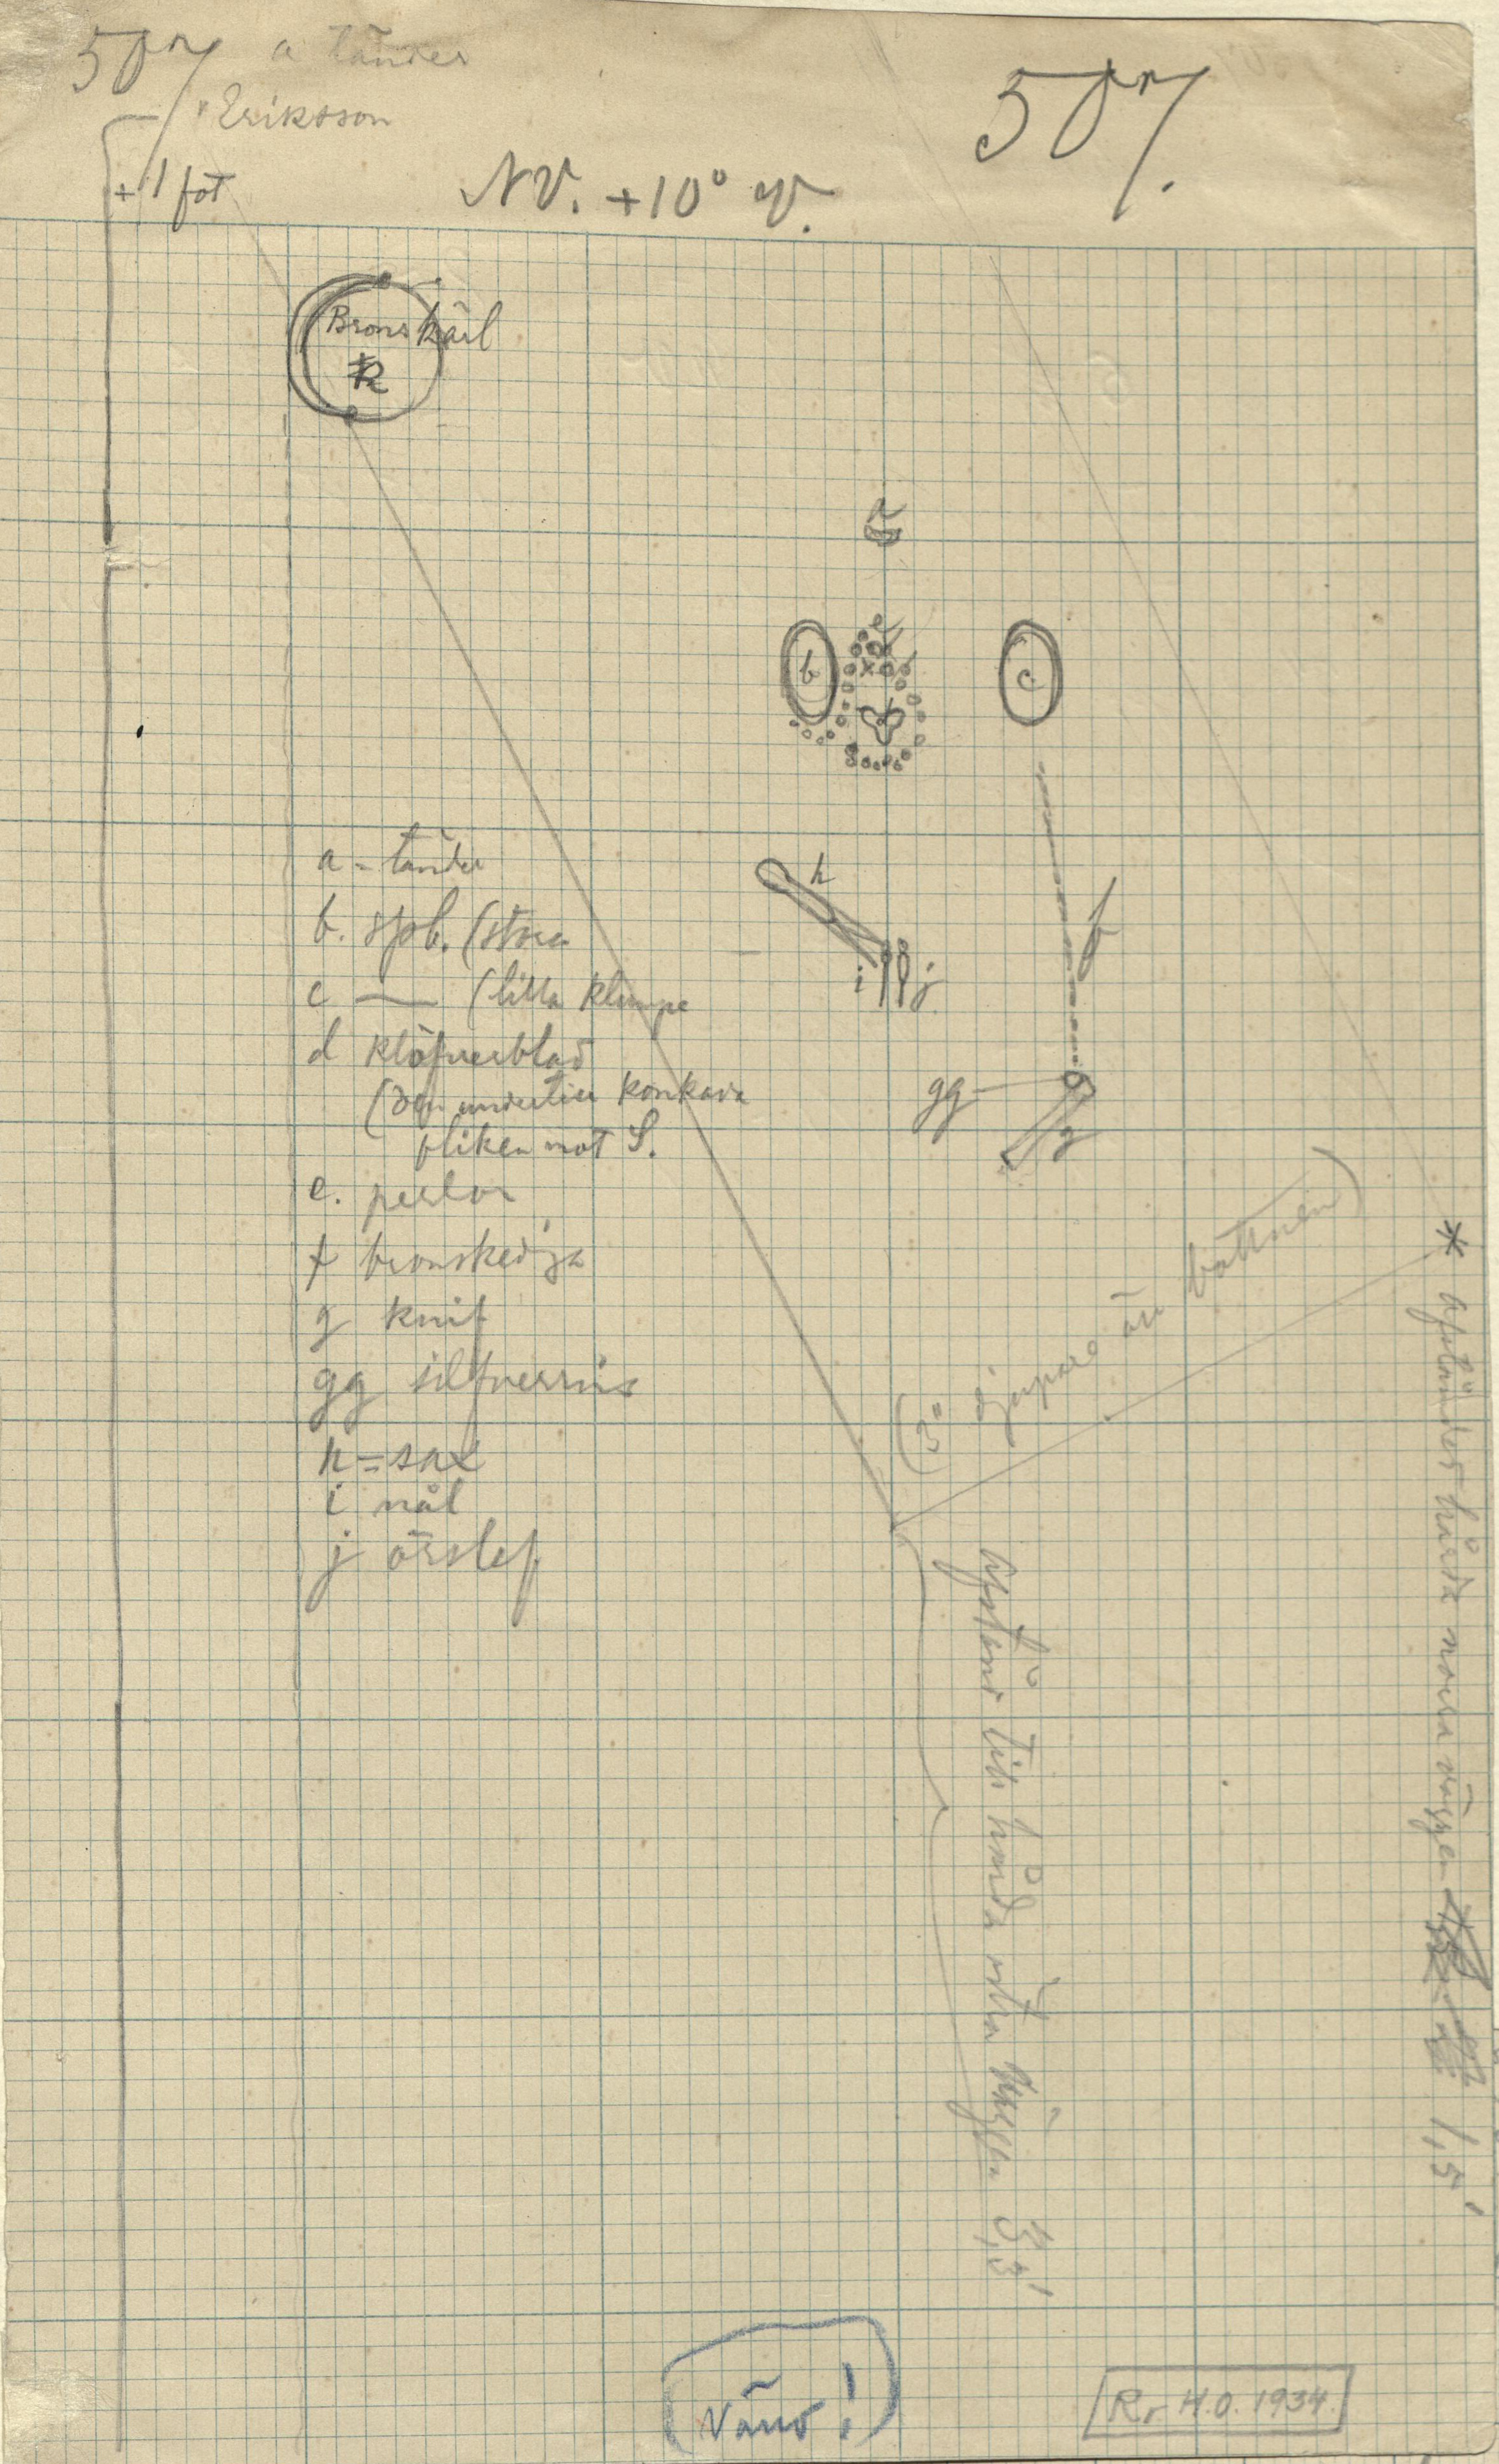 507 a tänder
Eriksson
+ 1 fot
NV. + 10° V.
507.
Bronskärl
R
a
e
b
x
c
d
h
i
j
f
gg
g
a = tänder
b. spb. (stora
c — (lilla klumpe
d klöfverblad
(den undertill konkava
fliken mot S.
e. perlor
f bronskedja
g knif
gg silfverring
h = sax
i nål
j örslef
(3" djupare än bottnen)
* afståndet hårda norra väggen 1,5'
Afstånd till hårda väggen 3,3'
Vänd!
R. H.O. 1934.